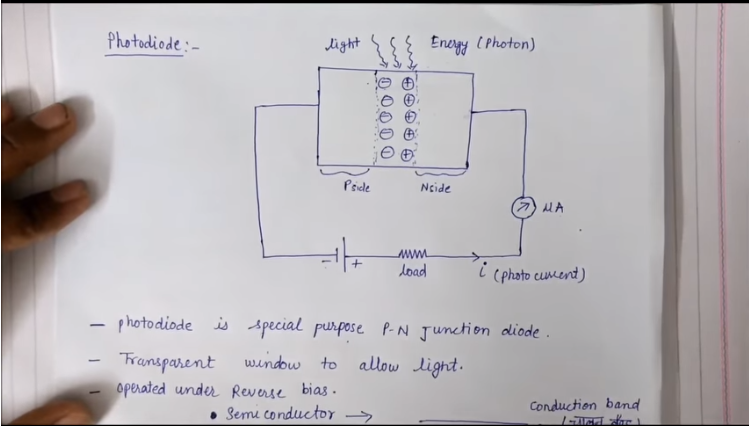 Photodiode:-
light Energy (Photon)
⊖ ⊕
⊖ ⊕
⊖ ⊕
⊖ ⊕
⊖ ⊕
Pside Nside
μA
- +
load
i (photo current)
- photodiode is special purpose P-N Junction diode.
- Transparent window to allow light.
- operated under Reverse bias.
• Semiconductor →
Conduction band